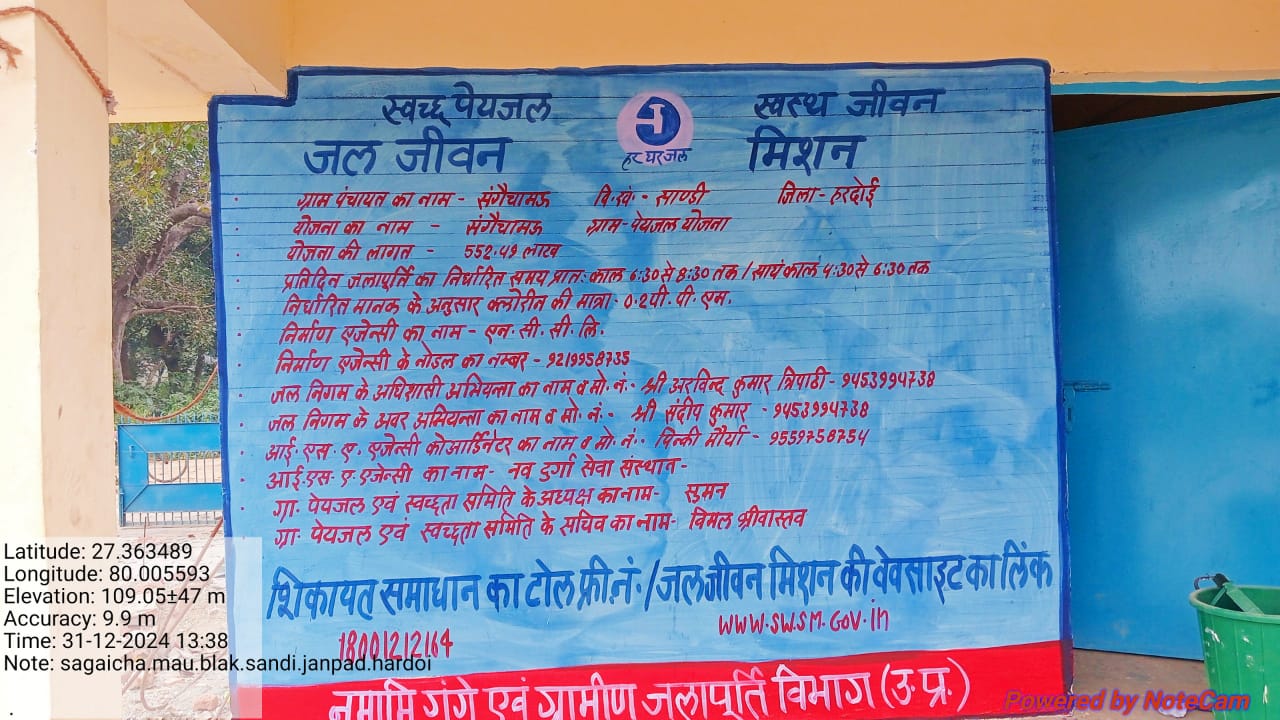 स्वच्छ पेयजल स्वस्थ जीवन
जल जीवन मिशन
हर घर जल
ग्राम पंचायत का नाम - संगैचामऊ वि.खं. - साण्डी जिला - हरदोई
योजना का नाम - संगैचामऊ ग्राम-पेयजल योजना
योजना की लागत - 552.49 लाख
प्रतिदिन जलापूर्ति का निर्धारित समय प्रातः काल 6:30 से 8:30 तक / सायंकाल 4:30 से 6:30 तक
निर्धारित मानक के अनुसार क्लोरीन की मात्रा 0.2 पी.पी.एम.
निर्माण एजेन्सी का नाम - एन.सी.सी.लि.
निर्माण एजेन्सी के नोडल का नम्बर - 9219958735
जल निगम के अधिशासी अभियन्ता का नाम व मो.नं.- श्री अरविन्द कुमार त्रिपाठी - 9453994738
जल निगम के अवर अभियन्ता का नाम व मो.नं.- श्री संदीप कुमार - 9453994738
आई.एस.ए. एजेन्सी कोआर्डिनेटर का नाम व मो.नं.. पिन्की मौर्या - 9559758754
आई.एस.ए. एजेन्सी का नाम- नव दुर्गा सेवा संस्थान-
ग्रा. पेयजल एवं स्वच्छता समिति के अध्यक्ष का नाम- सुमन
ग्रा. पेयजल एवं स्वच्छता समिति के सचिव का नाम- विमल श्रीवास्तव
शिकायत समाधान का टोल फ्री.नं./जल जीवन मिशन की वेवसाइट का लिंक
18001212164 www.swsm.gov.in
नमामि गंगे एवं ग्रामीण जलापूर्ति विभाग (उ.प्र.)
Latitude: 27.363489
Longitude: 80.005593
Elevation: 109.05±47 m
Accuracy: 9.9 m
Time: 31-12-2024 13:38
Note: sagaicha.mau.blak.sandi.janpad.hardoi
Powered by NoteCam